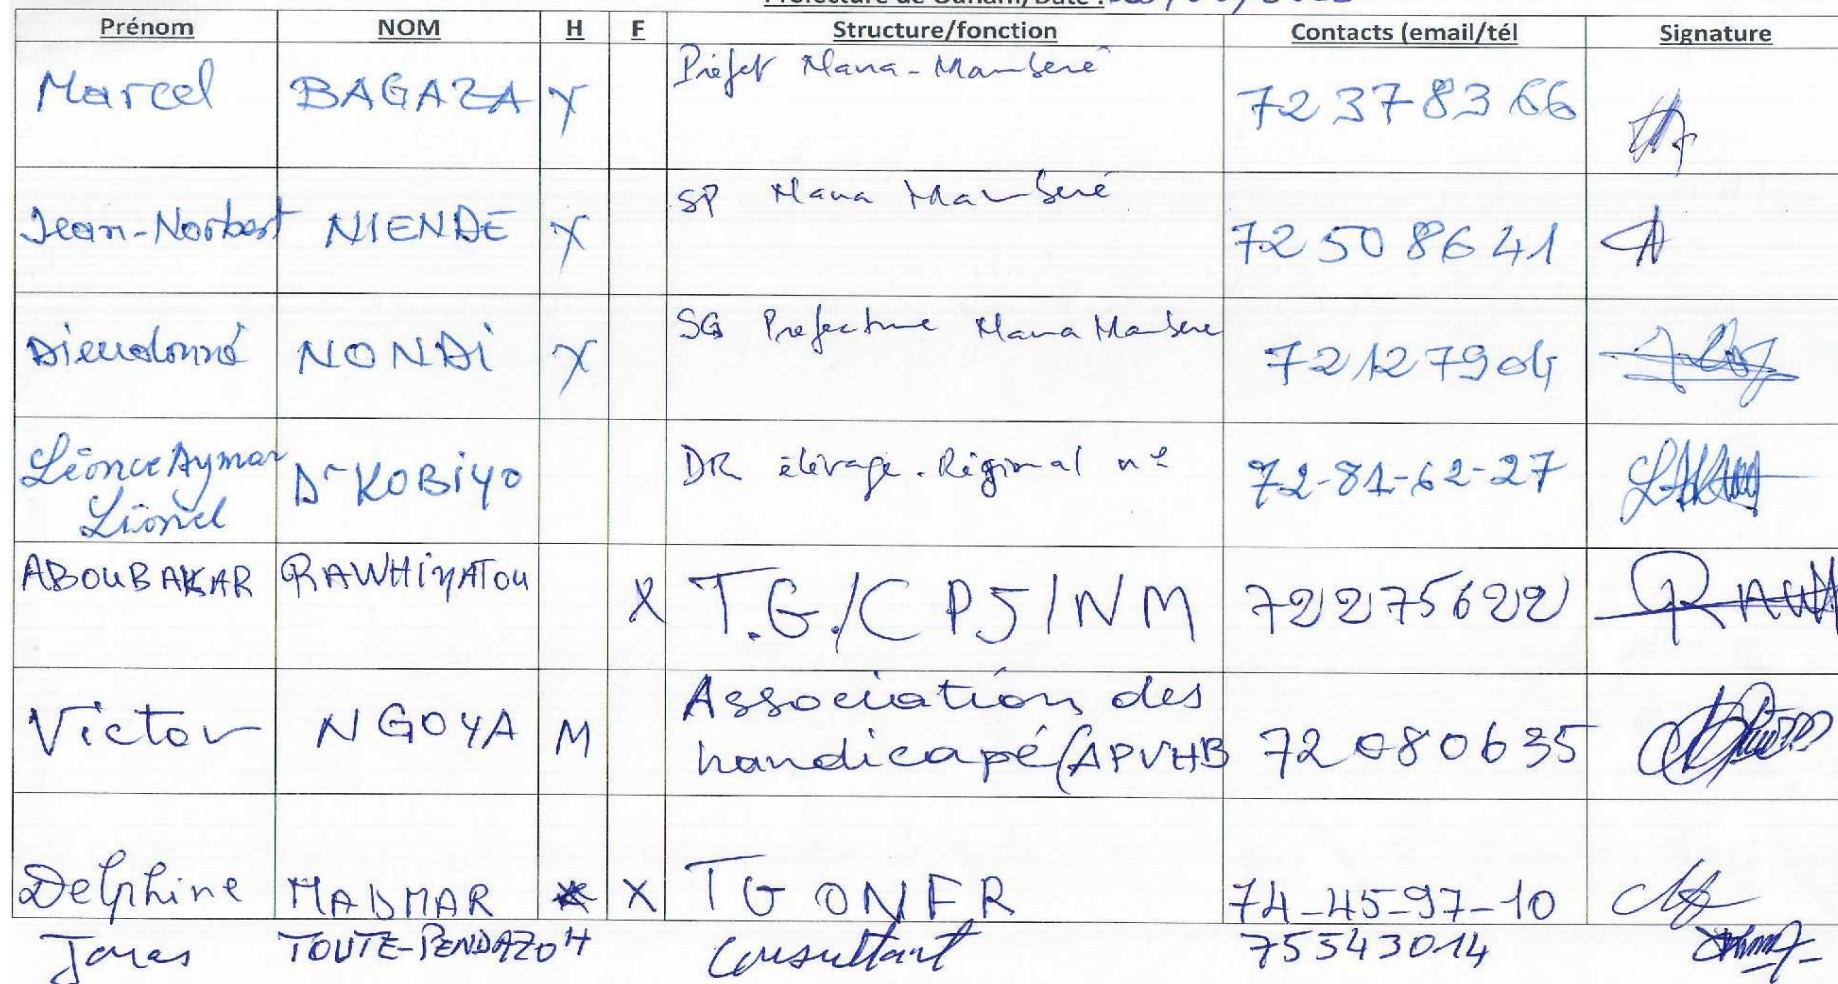 Préfecture de Ouham/Date :
Prénom NOM H F Structure/fonction Contacts (email/tél Signature
Marcel BAGAZA X Préfet Nana-Mambéré 72378366
Jean-Norbert NIENDE X SP Nana Mambéré 72508641
Dieudonné NONDI X SG Prefecture Nana Mambere 72127904
Léonce Aymar
Lionel Dr KOBIYO DR élevage. Régional n° 72-81-62-27
ABOUBAKAR RAWHIYATOU X T.G./CP5/NM 72275622 RAWH
Victor NGOYA M Association des
handicapé (APVHB 72080635
Delphine MADMAR X TG ONFR 74-45-97-10
TOUTE-PENDAZO H Consultant 75543014